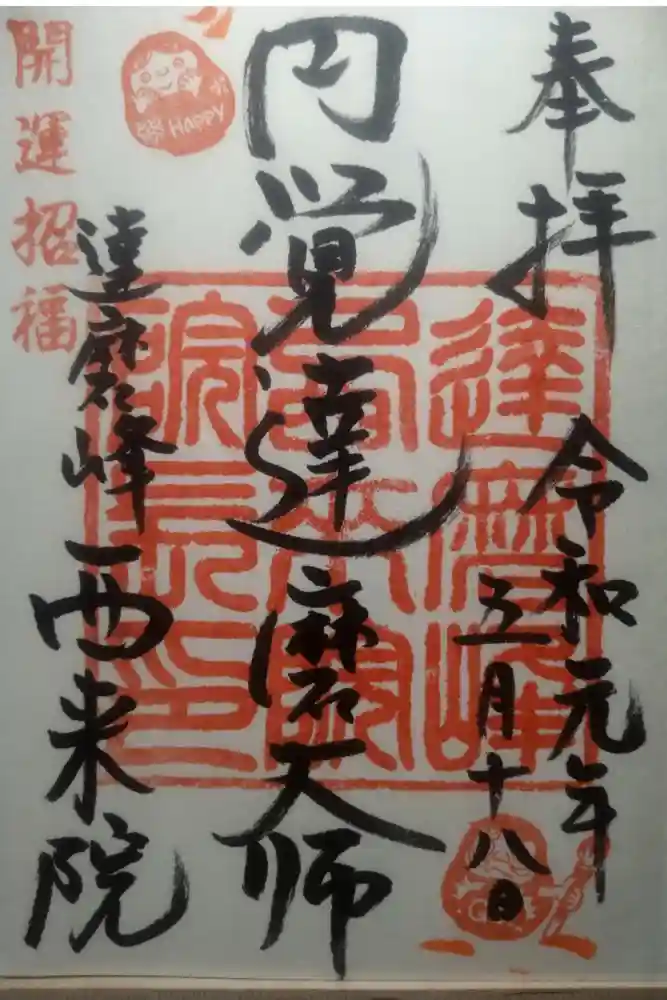 奉拝
令和元年
五月十八日
円覚達磨大師
達磨峰西来院
開運招福
HAPPY
達磨峰